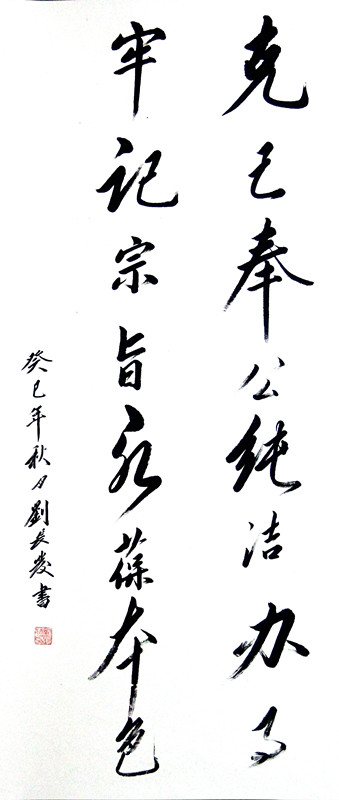 克己奉公纯洁办事
牢记宗旨永葆本色
癸巳年秋月劉長發書